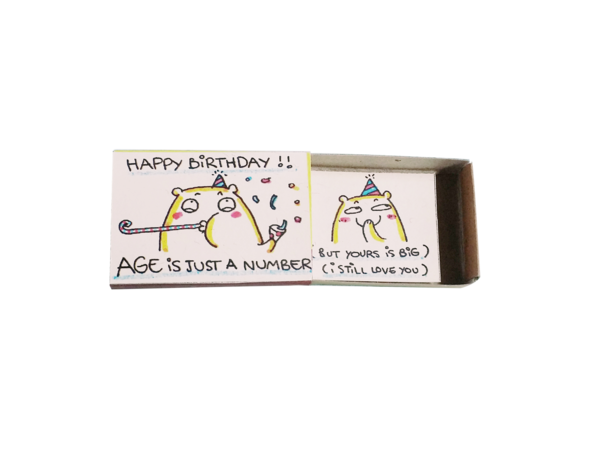 HAPPY BiRTHDAY !!
AGE iS JUST A NUMBER
( BUT YOURS iS BiG )
( i STiLL LOVE YOU )